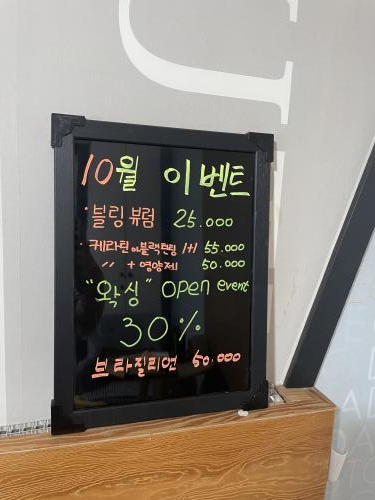 10월 이벤트
· 블링 뷰럼 25.000
· 케라틴 or 블랙틴팅 1+1 55.000
〃 + 영양제 50.000
"왁싱" open event
30%
브라질리언 50.000